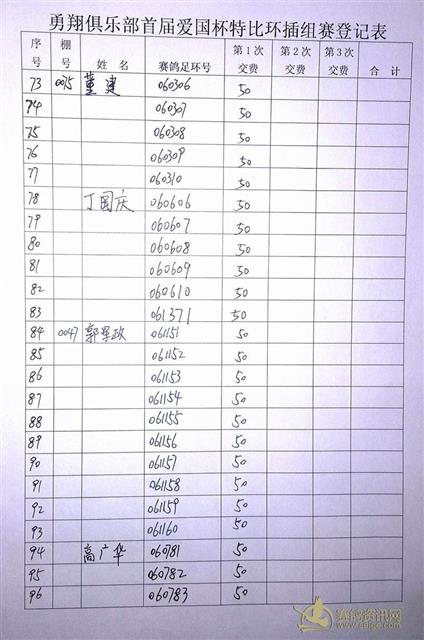 勇翔俱乐部首届爱国杯特比环插组赛登记表
序号 棚号 姓名 赛鸽足环号 第1次交费 第2次交费 第3次交费 合计
73 0075 董建 060306 50
74 060307 50
75 060308 50
76 060309 50
77 060310 50
78 丁国庆 060606 50
79 060607 50
80 060608 50
81 060609 50
82 060610 50
83 061371 50
84 0047 郭军政 061151 50
85 061152 50
86 061153 50
87 061154 50
88 061155 50
89 061156 50
90 061157 50
91 061158 50
92 061159 50
93 061160 50
94 高广华 060781 50
95 060782 50
96 060783 50
赛鸽资讯网